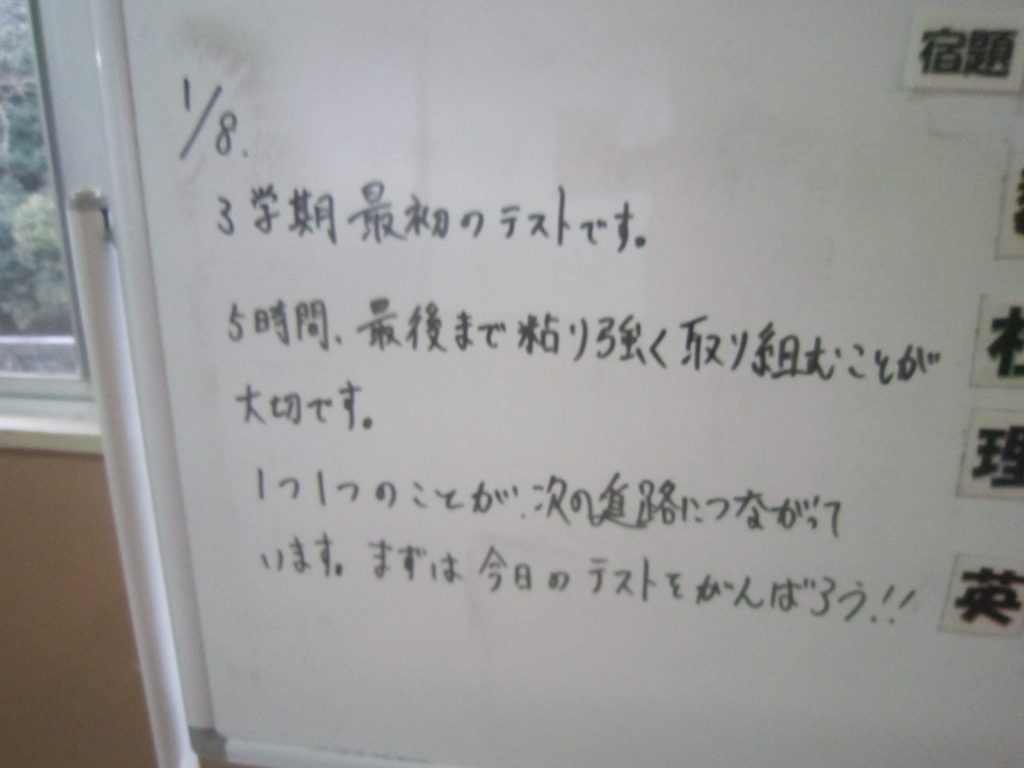 宿題
1/8.
3学期最初のテストです。
5時間、最後まで粘り強く取り組むことが
大切です。
1つ1つのことが、次の進路につながって
います。まずは今日のテストをがんばろう!!
理
英